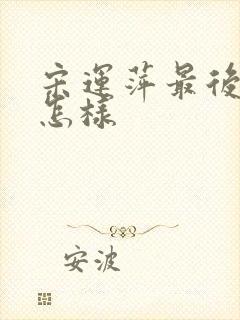 宋運萍最後
怎樣
安波